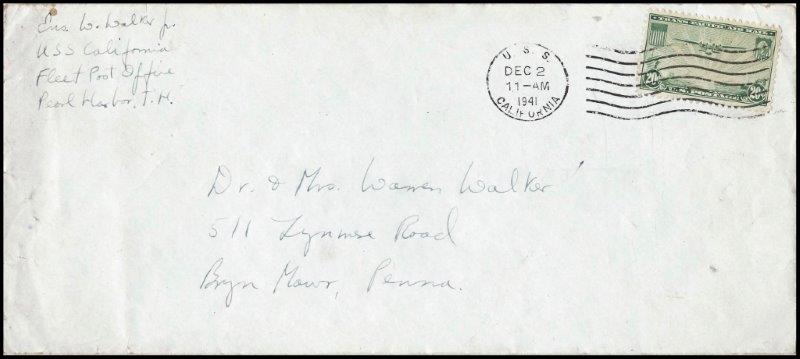 Ens. W. Walker Jr.
USS California
Fleet Post Office
Pearl Harbor, T.H.
U. S. S.
DEC 2
11-AM
1941
CALIFORNIA
TRANS-PACIFIC AIR MAIL
20¢ U.S. POSTAGE 20¢
Dr. & Mrs. Warren Walker
511 Road
Bryn Mawr, Penna.